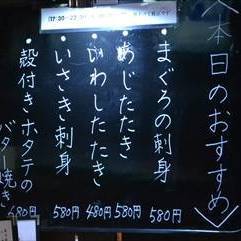 本日のおすすめ
まぐろの刺身
580円
あじたたき
580円
いわしたたき
480円
いさき刺身
580円
殻付きホタテの
バター焼き
480円